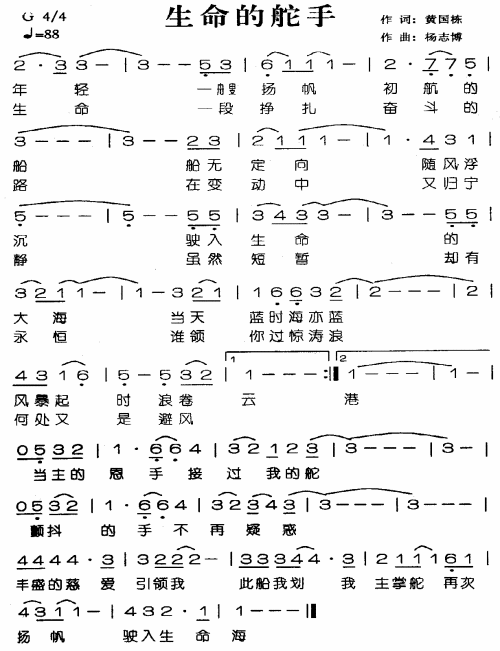 生命的舵手
G 4/4
♩=88
作 词：黄国栋
作 曲：杨志博
2·33—|3——53|6111—|2·775|
年 轻 一艘 扬 帆 初 航 的
生 命 一段 挣 扎 奋 斗 的
3———|3——23|2111—|1·431|
船 船无 定 向 随风浮
路 在变 动 中 又归宁
5———|5——55|3433—|3——55|
沉 驶入 生 命 的
静 虽然 短 暂 却有
3211—|1—321|16632|2———|2—1—|
大 海 当天 蓝时海亦蓝
永 恒 谁领 你过惊涛浪
4316|5—532|1———:||1———|1—1—|
风暴起 时 浪卷 云 港
何处又 是 避风
0532|1·664|32123|3———|3—1—|
当主的 恩 手 接 过 我的舵
0532|1·664|32343|3———|3—1—|
颤抖 的 手 不 再 疑 惑
4444·3|3222—|33344·3|211161|
丰盛的慈 爱 引领我 此船我划 我 主掌舵 再次
4311—|432·1|1———||
扬 帆 驶入生 命 海